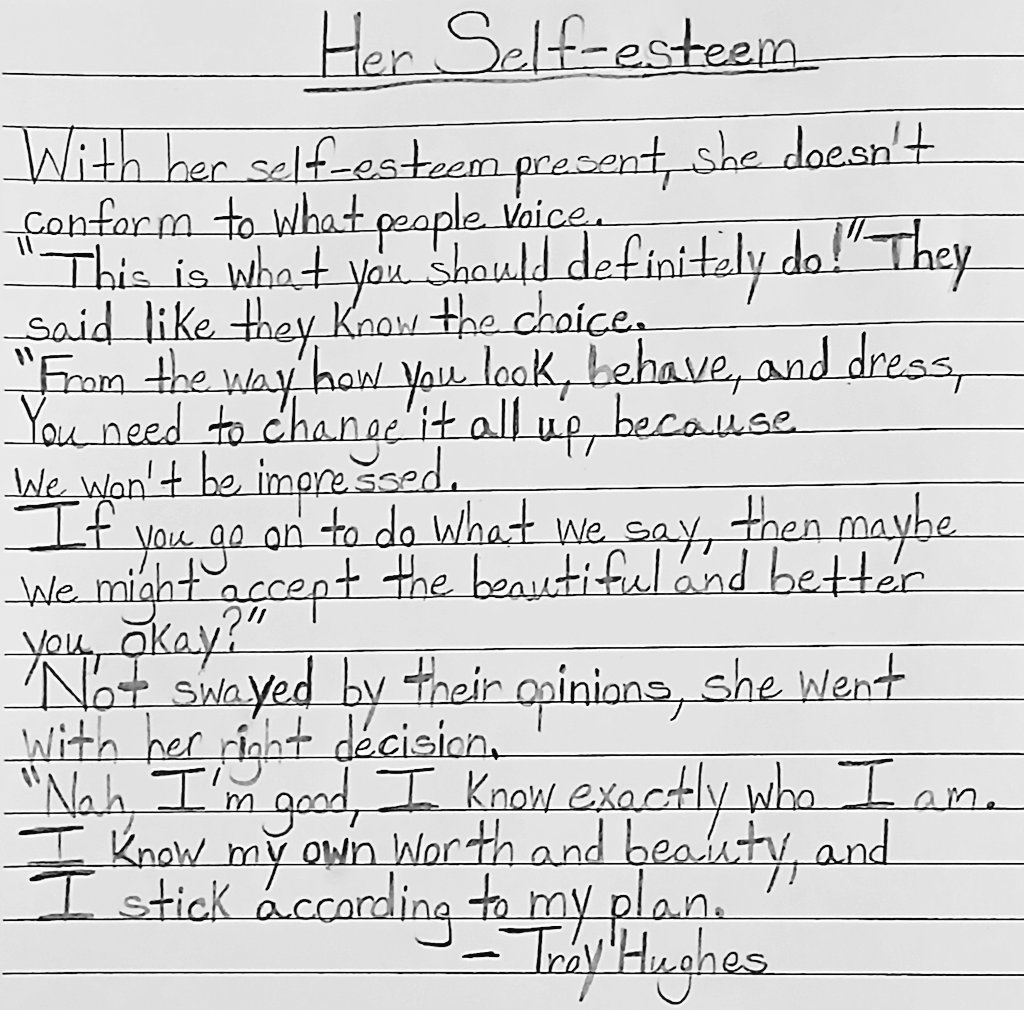 Her Self-esteem
With her self-esteem present, she doesn't
conform to what people voice.
"This is what you should definitely do!" They
said like they know the choice.
"From the way how you look, behave, and dress,
You need to change it all up, because
we won't be impressed.
If you go on to do what we say, then maybe
we might accept the beautiful and better
you, okay?"
Not swayed by their opinions, she went
with her right decision.
"Nah, I'm good, I know exactly who I am.
I know my own worth and beauty, and
I stick according to my plan.
- Troy Hughes